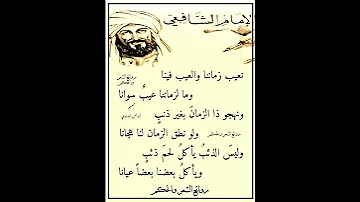 الإمام الشافعي
نعيب زماننا والعيب فينا
وما لزماننا عيبٌ سوانا
ونهجو ذا الزمانَ بغير ذنبٍ
ولو نطق الزمان لنا هجانا
وليسَ الذئبُ يأكلُ لحمَ ذئبٍ
ويأكلُ بعضنا بعضاً عيانا
روائع الشعر والحكم